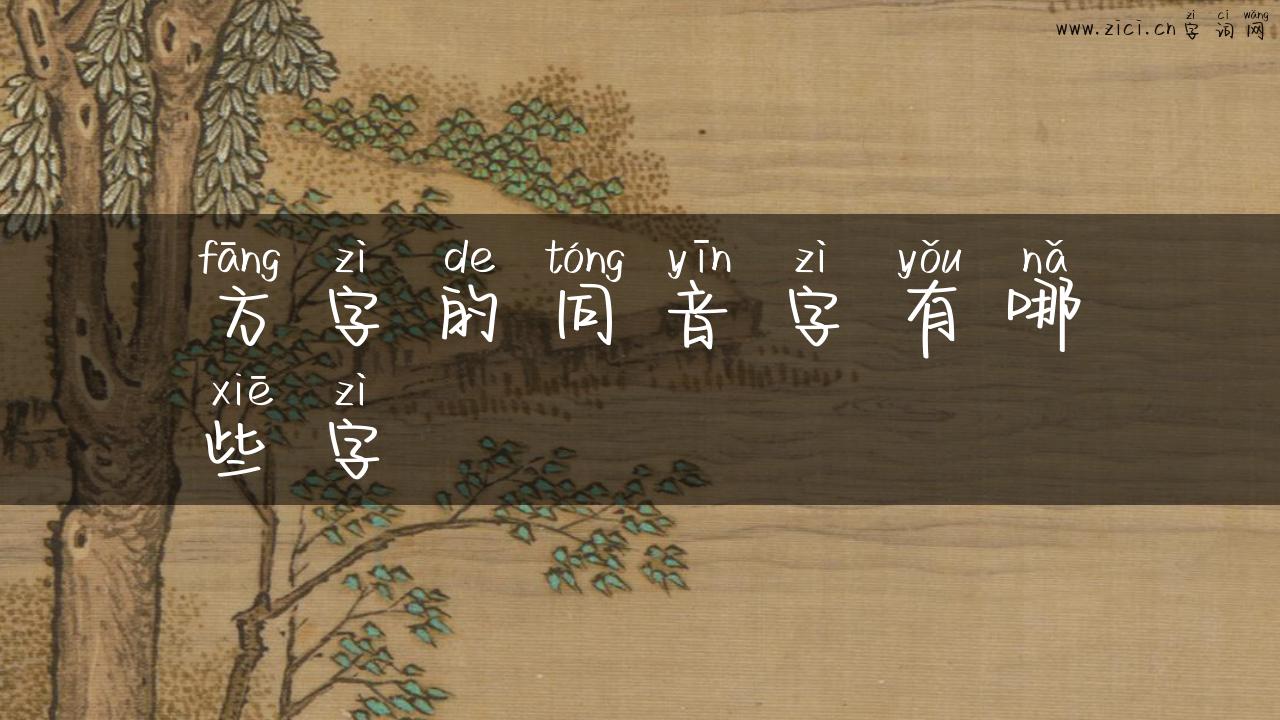 zì cí wǎng
www.zici.cn 字词网
fāng zì de tóng yīn zì yǒu nǎ
方字的同音字有哪
xiē zì
些字